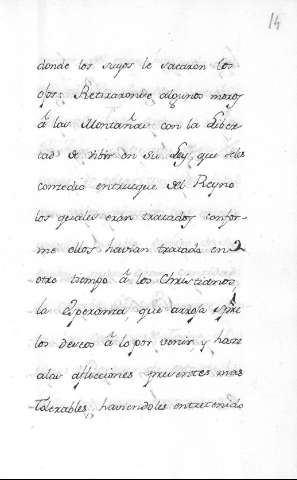 14
donde los suyos le sacaron los
ojos: Retiraronse algunos moros
â las Montañas con la Liber-
tad de vibir en su Ley, que seles
concedio entrueque del Reyno
los quales eran tratados confor-
me ellos havian tratado en
otro tiempo â los Christianos,
la esperanza, que arroja siempre
los deseos â lo por venir, y hace
alas aflicciones presentes mas
tolerables, haviendoles entretenido